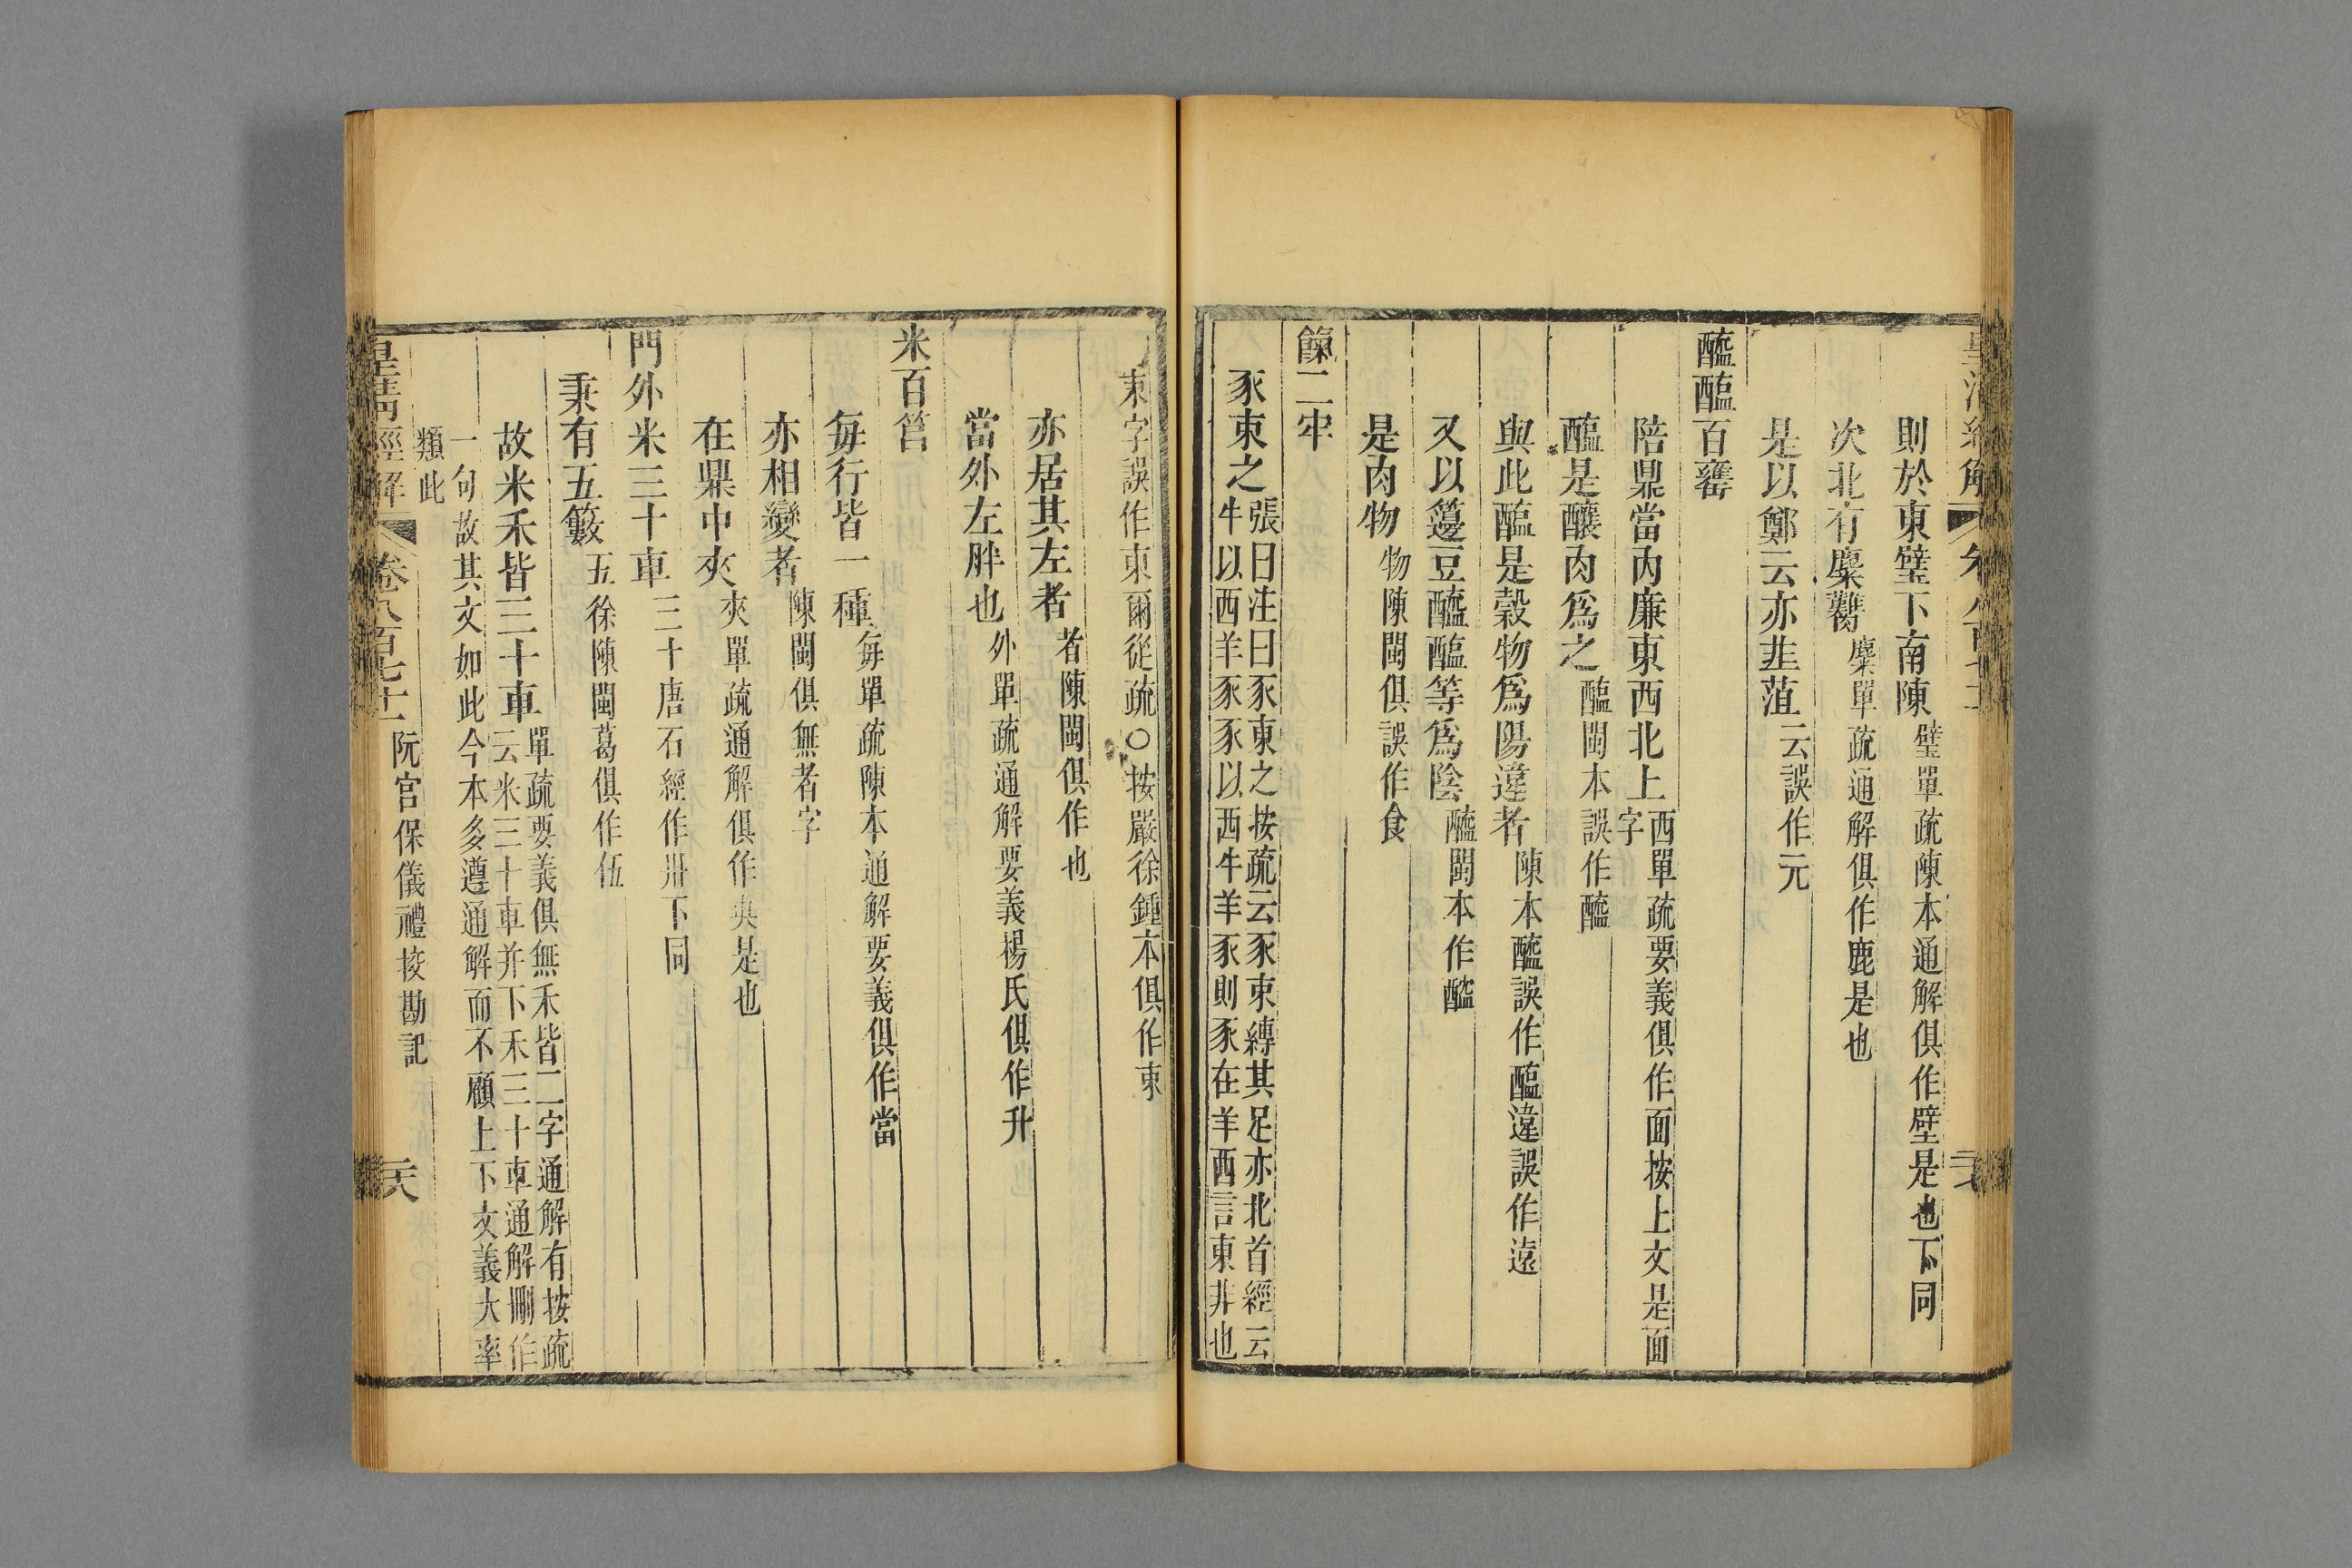 則於東璧下南陳璧單疏陳本通解俱作壁是也下同
次北有麋臡麋單疏通解俱作鹿是也
是以鄭云亦韭菹云誤作元
醯醢百罋
陪鼎當內廉東西北上西單疏要義俱作面按上文是面字
醢是釀肉爲之醢閩本誤作醯
與此醢是穀物爲陽違者陳本醯誤作醢違誤作遠
又以籩豆醯醢等爲陰醯閩本作醓
是肉物物陳閩俱誤作食
餼二牢
豕東之張曰注曰豕東之按疏云豕束縛其足亦北首經云
牛以西羊豕豕以西牛羊豕則豕在羊西言東非也
東字誤作東爾從疏○按嚴徐鍾本俱作束
亦居其左者者陳閩俱作也
當外左胖也外單疏通解要義楊氏俱作升
米百筥
每行皆一種每單疏陳本通解要義俱作當
亦相變者陳閩俱無者字
在鼎中夾夾單疏通解俱作央是也
門外米三十車三十唐石經作卅下同
秉有五籔五徐陳閩葛俱作伍
故米禾皆三十車單疏要義俱無禾皆二字通解有按疏
云米三十車并下禾三十車通解刪作
一句故其文如此今本多遵通解而不顧上下文義大率
類此
皇淸經解
卷八百七十一
阮宮保儀禮挍勘記